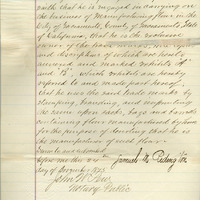 oath that he is engaged in carrying on
the business of Manufacturing flour in the
City of Sacramento, County of Sacramento, State
of California, that he is the exclusive
owner of the trade marks, one copy
and description of which are hereto
annexed and marked exhibits "A"
and "B", which exhibits are hereby
referred to and made part hereof;
that he uses the said trade marks by
stamping, branding, and imprinting
the same upon sacks, bags and barrels
containing flour manufactured by him
for the purpose of denoting that he is
the manufacturer of such flour.
Sworn to and subscribed
before me this 24th
day of December 1875
Notary Public